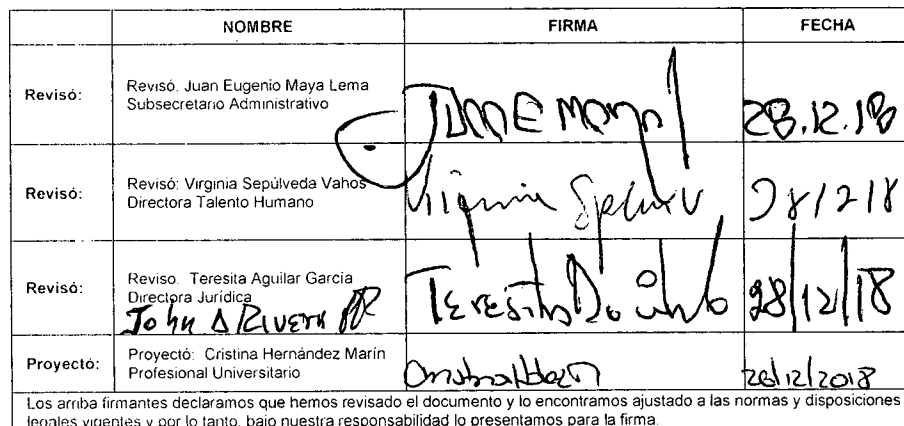 NOMBRE FIRMA FECHA
Revisó: Revisó. Juan Eugenio Maya Lema
Subsecretario Administrativo
28.12.18
Revisó: Revisó: Virginia Sepúlveda Vahos
Directora Talento Humano
Virginia
Revisó: Reviso. Teresita Aguilar García
Directora Jurídica
John A Rivera
Teresita 28/12/18
Proyectó: Proyectó: Cristina Hernández Marín
Profesional Universitario
12/2018
Los arriba firmantes declaramos que hemos revisado el documento y lo encontramos ajustado a las normas y disposiciones
legales vigentes y por lo tanto, bajo nuestra responsabilidad lo presentamos para la firma.